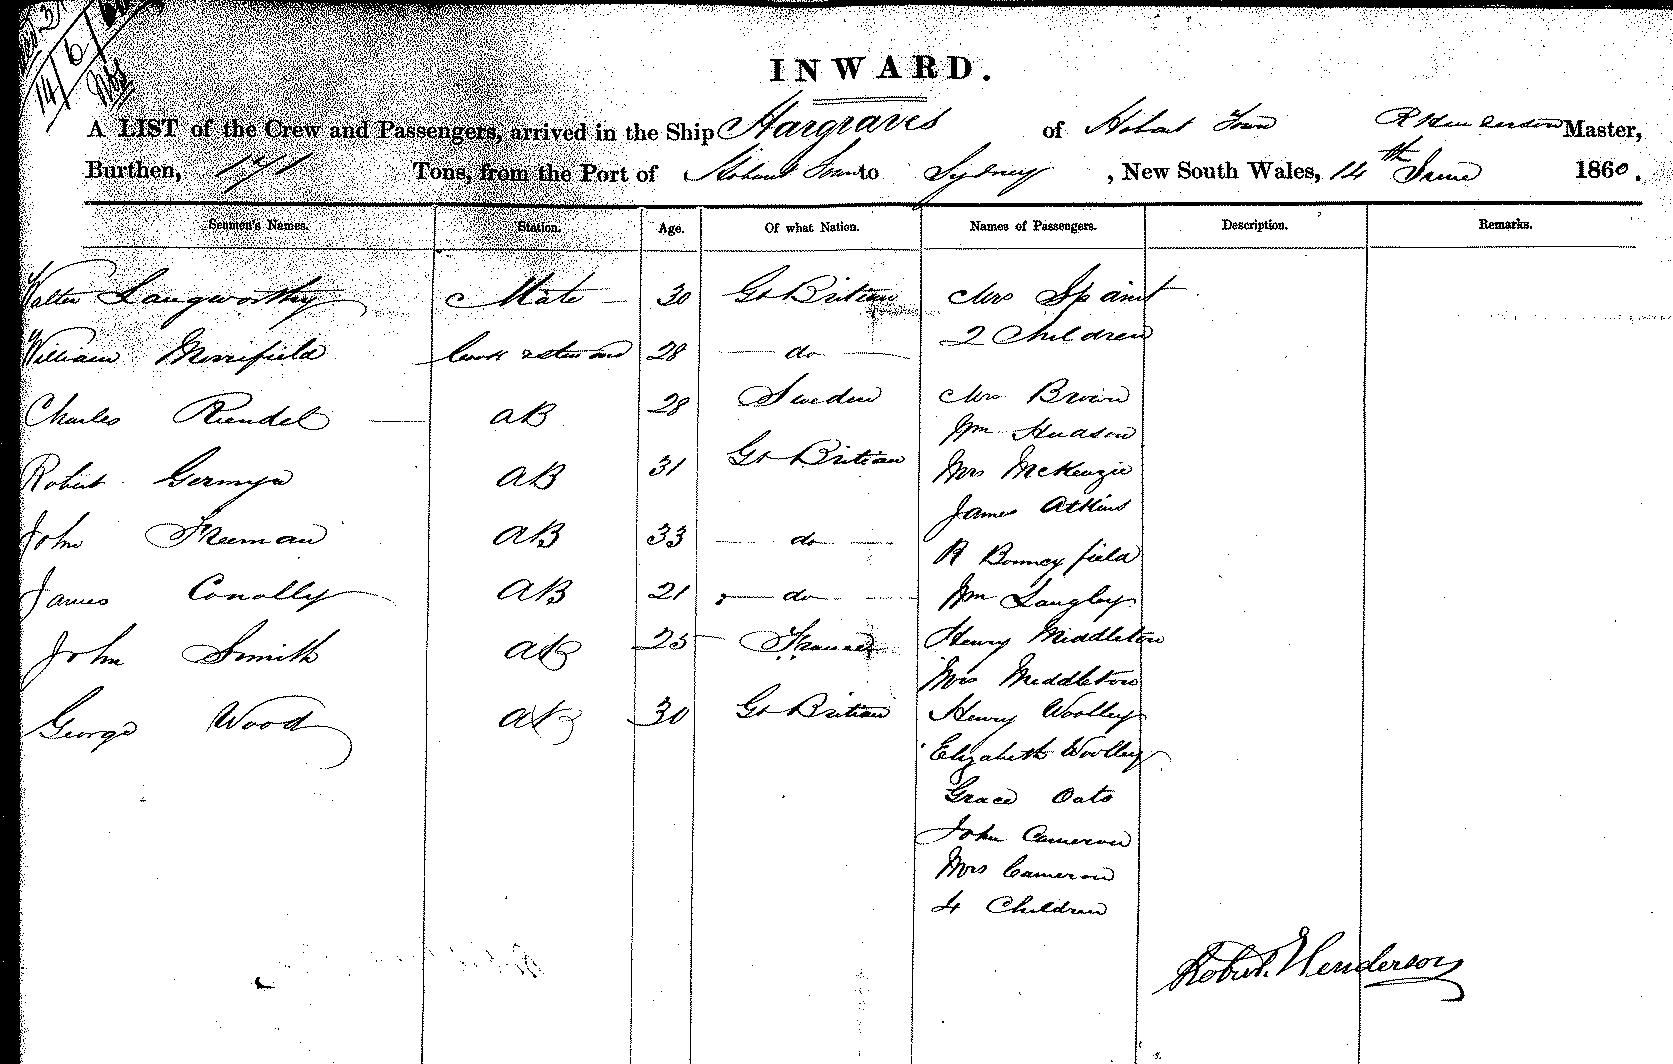 14/6
INWARD.
A LIST of the Crew and Passengers, arrived in the Ship Hargraves of Hobart Town R Henderson Master,
Burthen, 171 Tons, from the Port of Hobart Town to Sydney, New South Wales, 14th June 1860.
Seamen's Names. Station. Age. Of what Nation. Names of Passengers. Description. Remarks.
Walter Langworthy Mate 30 Gt Britian Mrs Spaint
2 Children
William Merrifield Cook & Steward 28 do
Charles Rendel AB 28 Sweden Mrs Brown
Wm Hudson
Robert Germyn AB 31 Gt Britian Mrs McKenzie
James Atkins
John Freeman AB 33 do R Bonneyfield
James Conolly AB 21 do Wm Langley
John Smith AB 25 France Henry Middleton
Mrs Middleton
George Wood AB 30 Gt Britian Henry Woolley
Elizabeth Woolley
Grace Oats
John Cameron
Mrs Cameron
4 Children
Robert Henderson